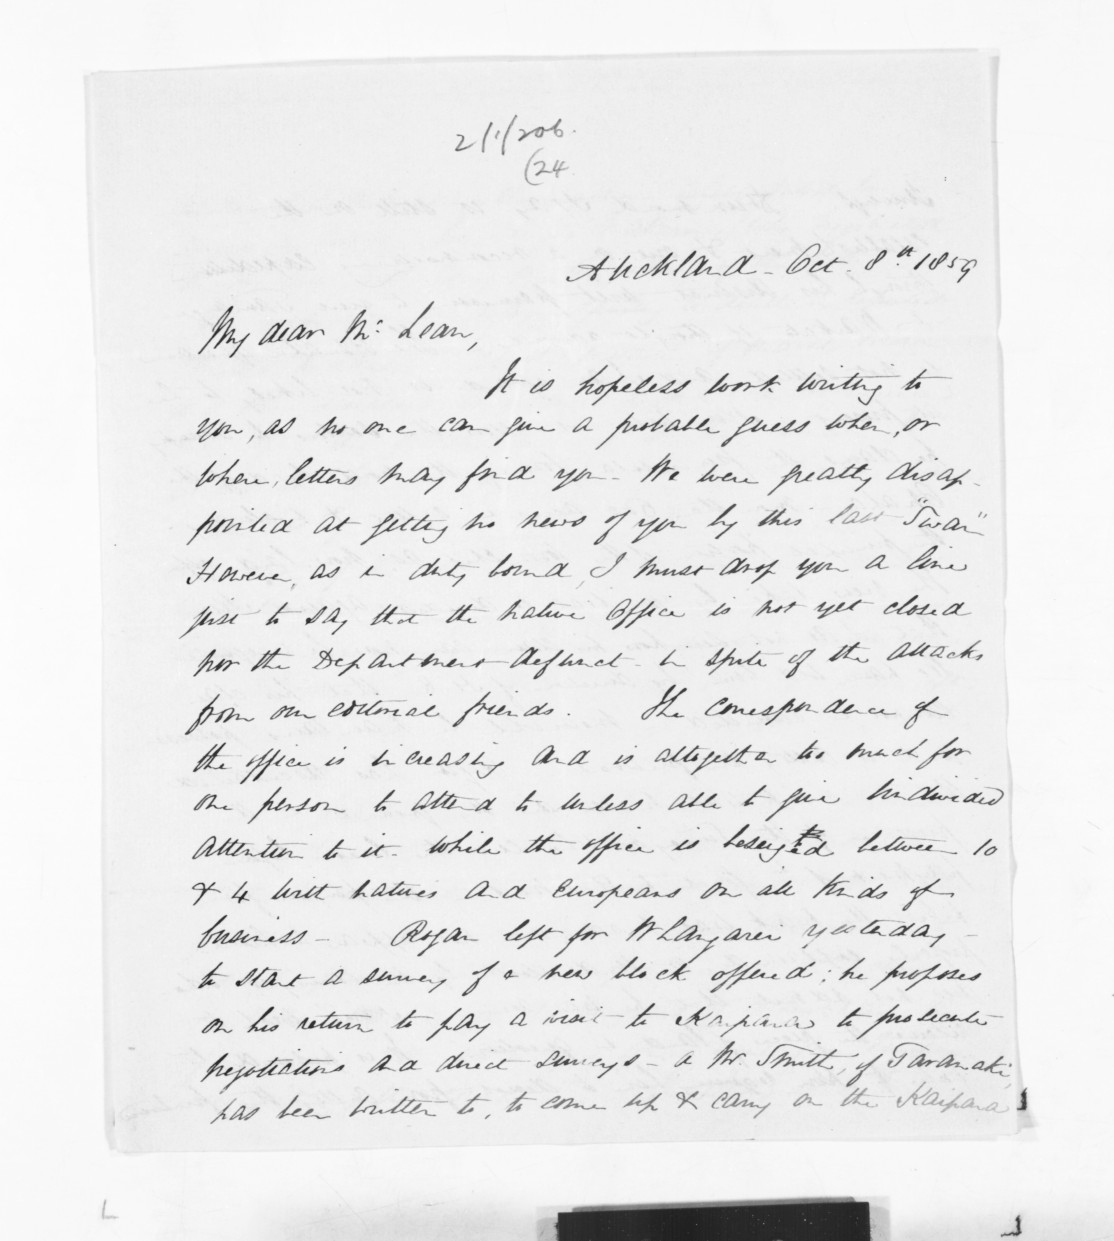 2/1/206.
(24
Auckland - Oct. 8th 1859
My dear Mc Lean,
It is hopeless work writing to
you, as no one can give a probable guess when, or
where, letters may find you - We were greatly disap-
pointed at getting no news of you by this last "Swan"
However, as in duty bound, I must drop you a line
just to say that the Native Office is not yet closed
nor the Department defunct - in spite of the attacks
from our editorial friends. The correspondence of
the office is increasing and is altogether too much for
one person to attend to unless able to give undivided
attention to it - while the office is beseiged between 10
& 4 with natives and Europeans on all kinds of
business - Rogan left for Whangarei yesterday -
to start a survey of a new block offered; he proposes
on his return to pay a visit to Kaipara to prosecute
negotiations and direct surveys - a Mr. Smith, of Taranaki,
has been written to, to come up & carry on the Kaipara